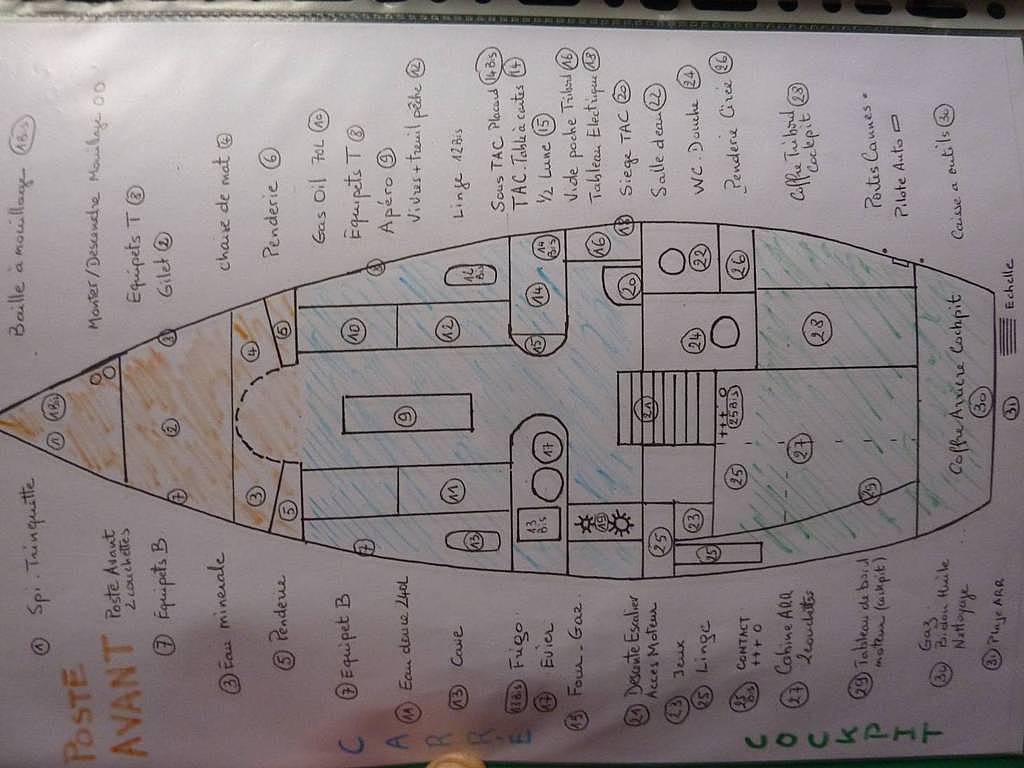 Baille à mouillage 1Bis
Monter/Descendre Mouillage 00
Equipets T 8
Gilet 2
chaise de mat 4
Penderie 6
Gas Oil 70L 10
Equipets T 8
Apéro 9
Vivres + treuil pêche 12
Linge 12Bis
Sous TAC Placard 14Bis
TAC. Table à cartes 14
1/2 Lune 15
Vide poche Tribord 16
Tableau Electrique 18
Siege TAC 20
Salle d'eau 22
WC. Douche 24
Penderie Cirée 26
Coffre Tribord 28
Cockpit
Portes Cannes
Pilote Auto
Caisse a outils 30
1
1Bis
2
7
8
3
4
5
6
7
8
9
10
11
12
12 Bis
13
13 Bis
14
14 Bis
15
16
17
18
19
20
21
22
23
24
25
25
25
+++ O
25Bis
26
27
28
29
Coffre Arrière Cockpit
30
31
Echelle
POSTE
AVANT
1 Spi. Trinquette
Poste Avant
2 couchettes
7 Equipets B
3 Eau minerale
5 Penderie
CARRE
7 Equipet B
11 Eau douce 240L
13 Cave
13Bis Frigo.
17 Evier
19 Four_Gaz.
21 Descente Escalier
Acces Moteur
23 Jeux
25 Linge
COCKPIT
25 Bis CONTACT
+++ O
27 Cabine ARR
2 couchettes
29 Tableau de bord
moteur (cockpit)
30 Gaz
Bidon Huile
Nettoyage
31 Plage ARR